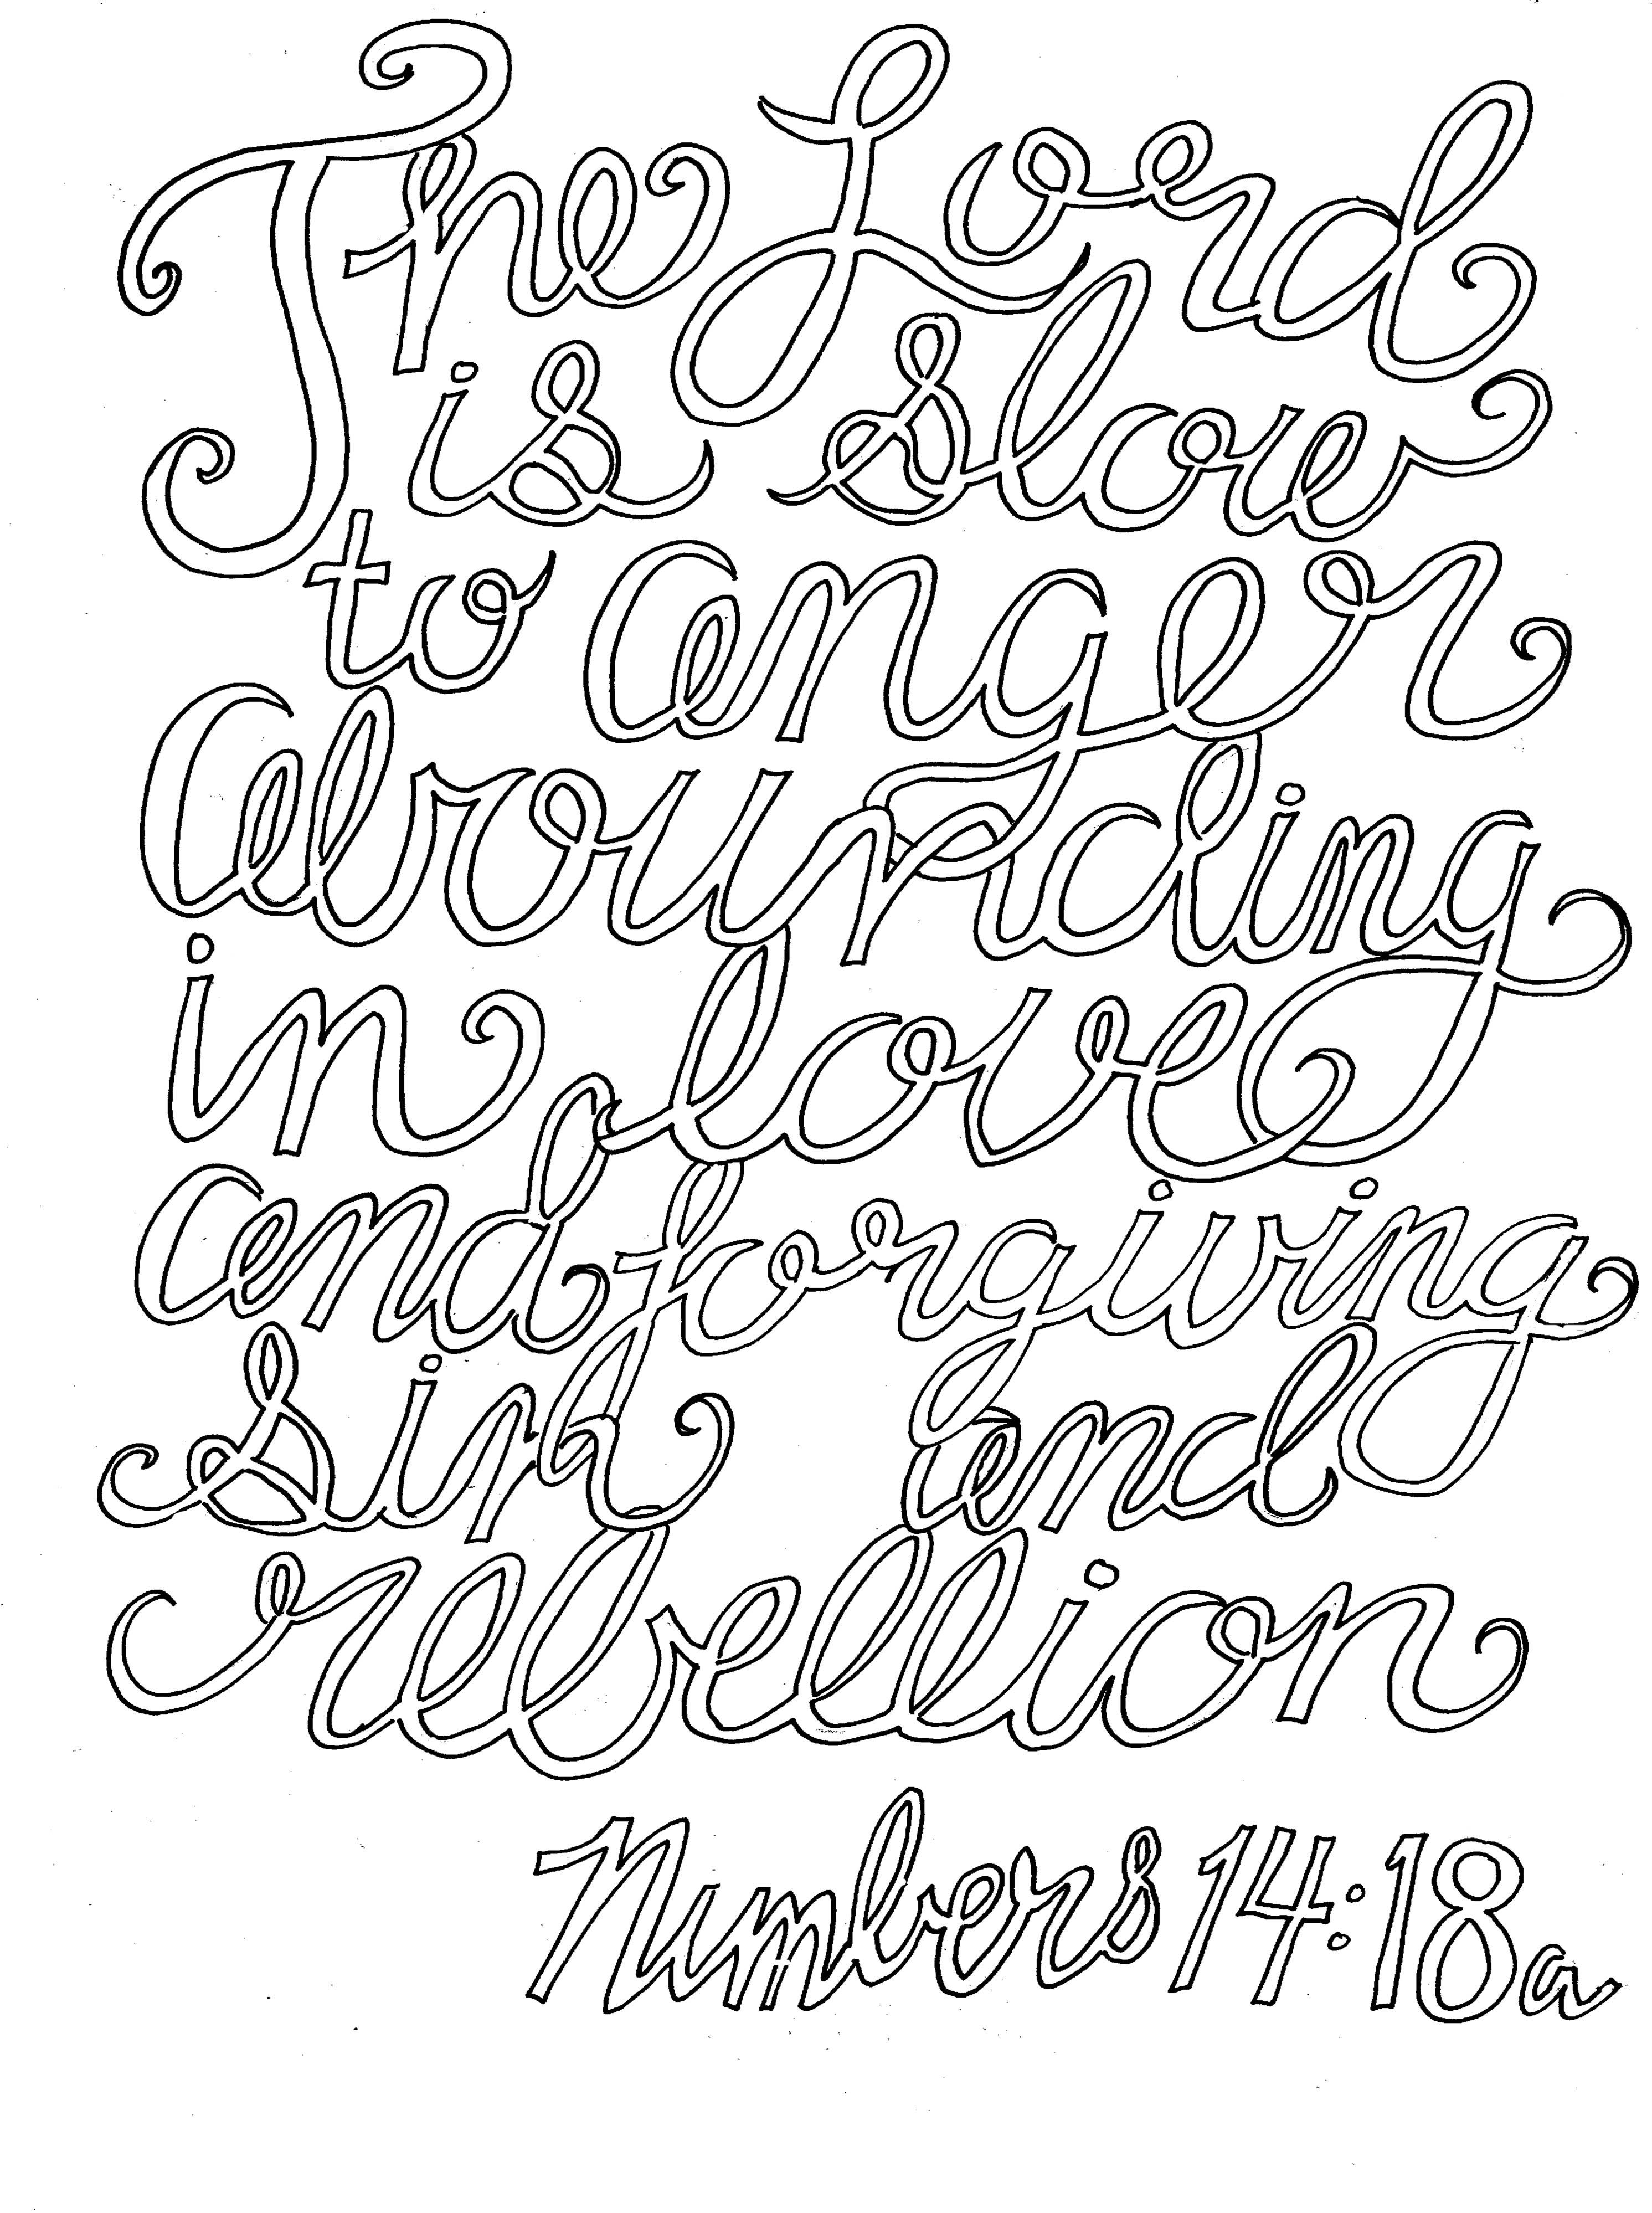 The Lord
is slow
to anger
abounding
in love
and forgiving
sin and
rebellion
Numbers 14:18a